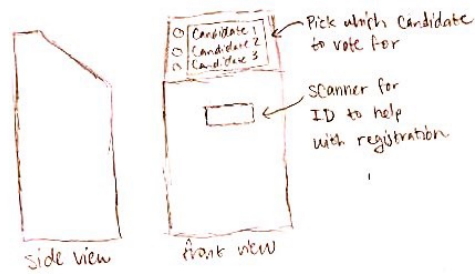 Candidate 1
Candidate 2
Candidate 3
Pick which candidate
to vote for
scanner for
ID to help
with registration
side view
front view